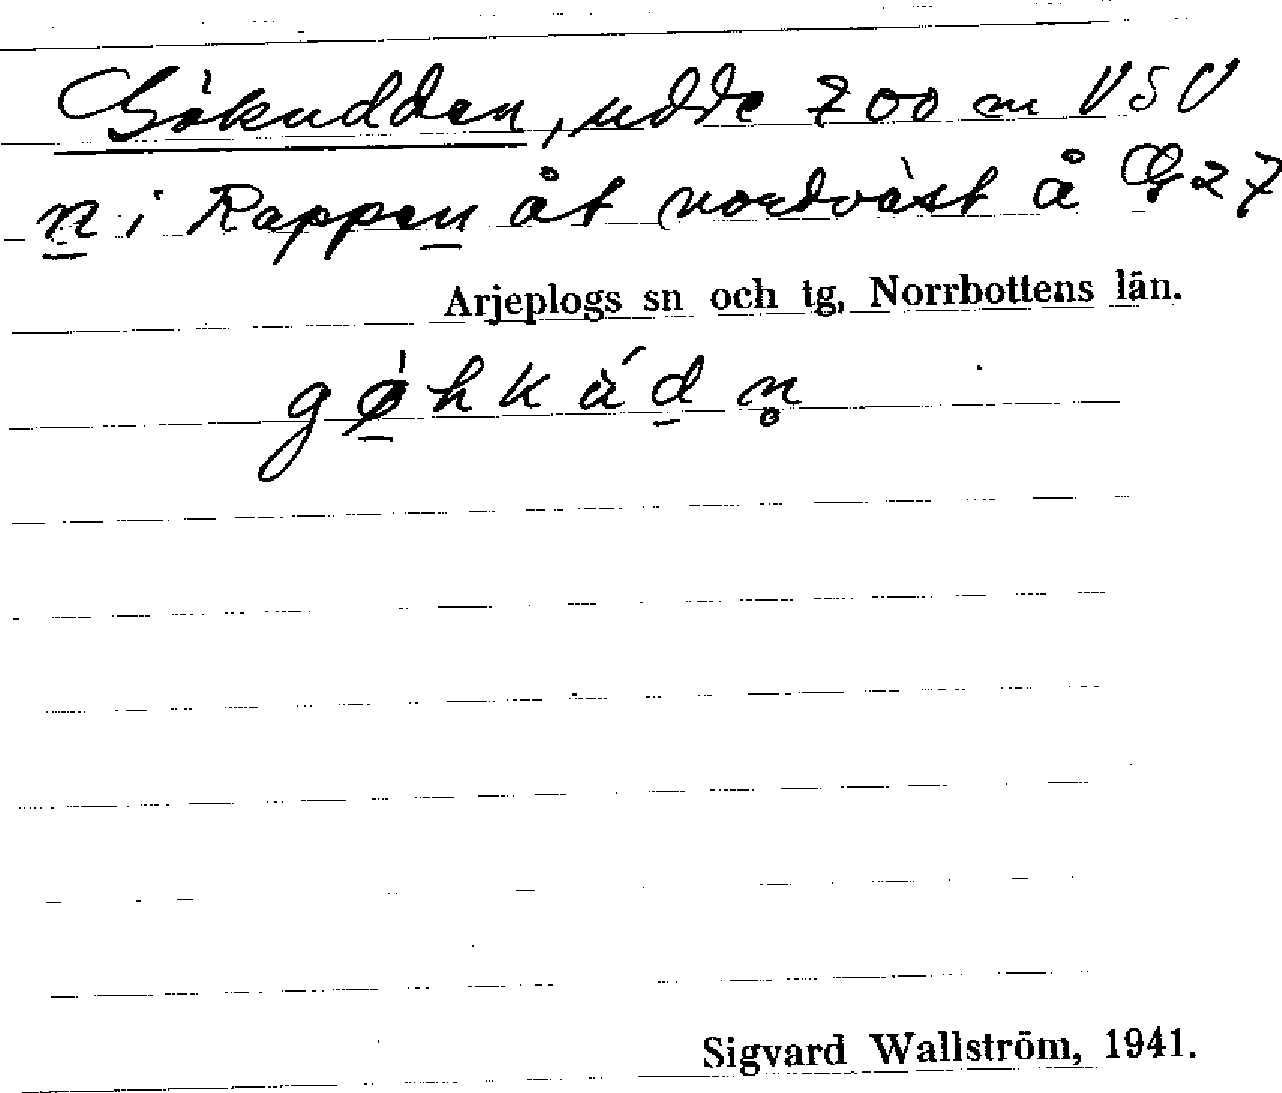 Gökudden, udde 700 m VSV
n i Rappen åt nordväst å G27
Arjeplogs sn och tg, Norrbottens län.
gǿhkǘdn̥
Sigvard Wallström, 1941.